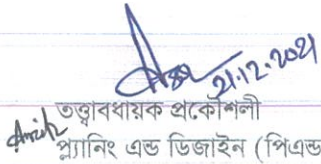 21.12.2021
তত্ত্বাবধায়ক প্রকৌশলী
প্ল্যানিং এন্ড ডিজাইন (পিএন্ড